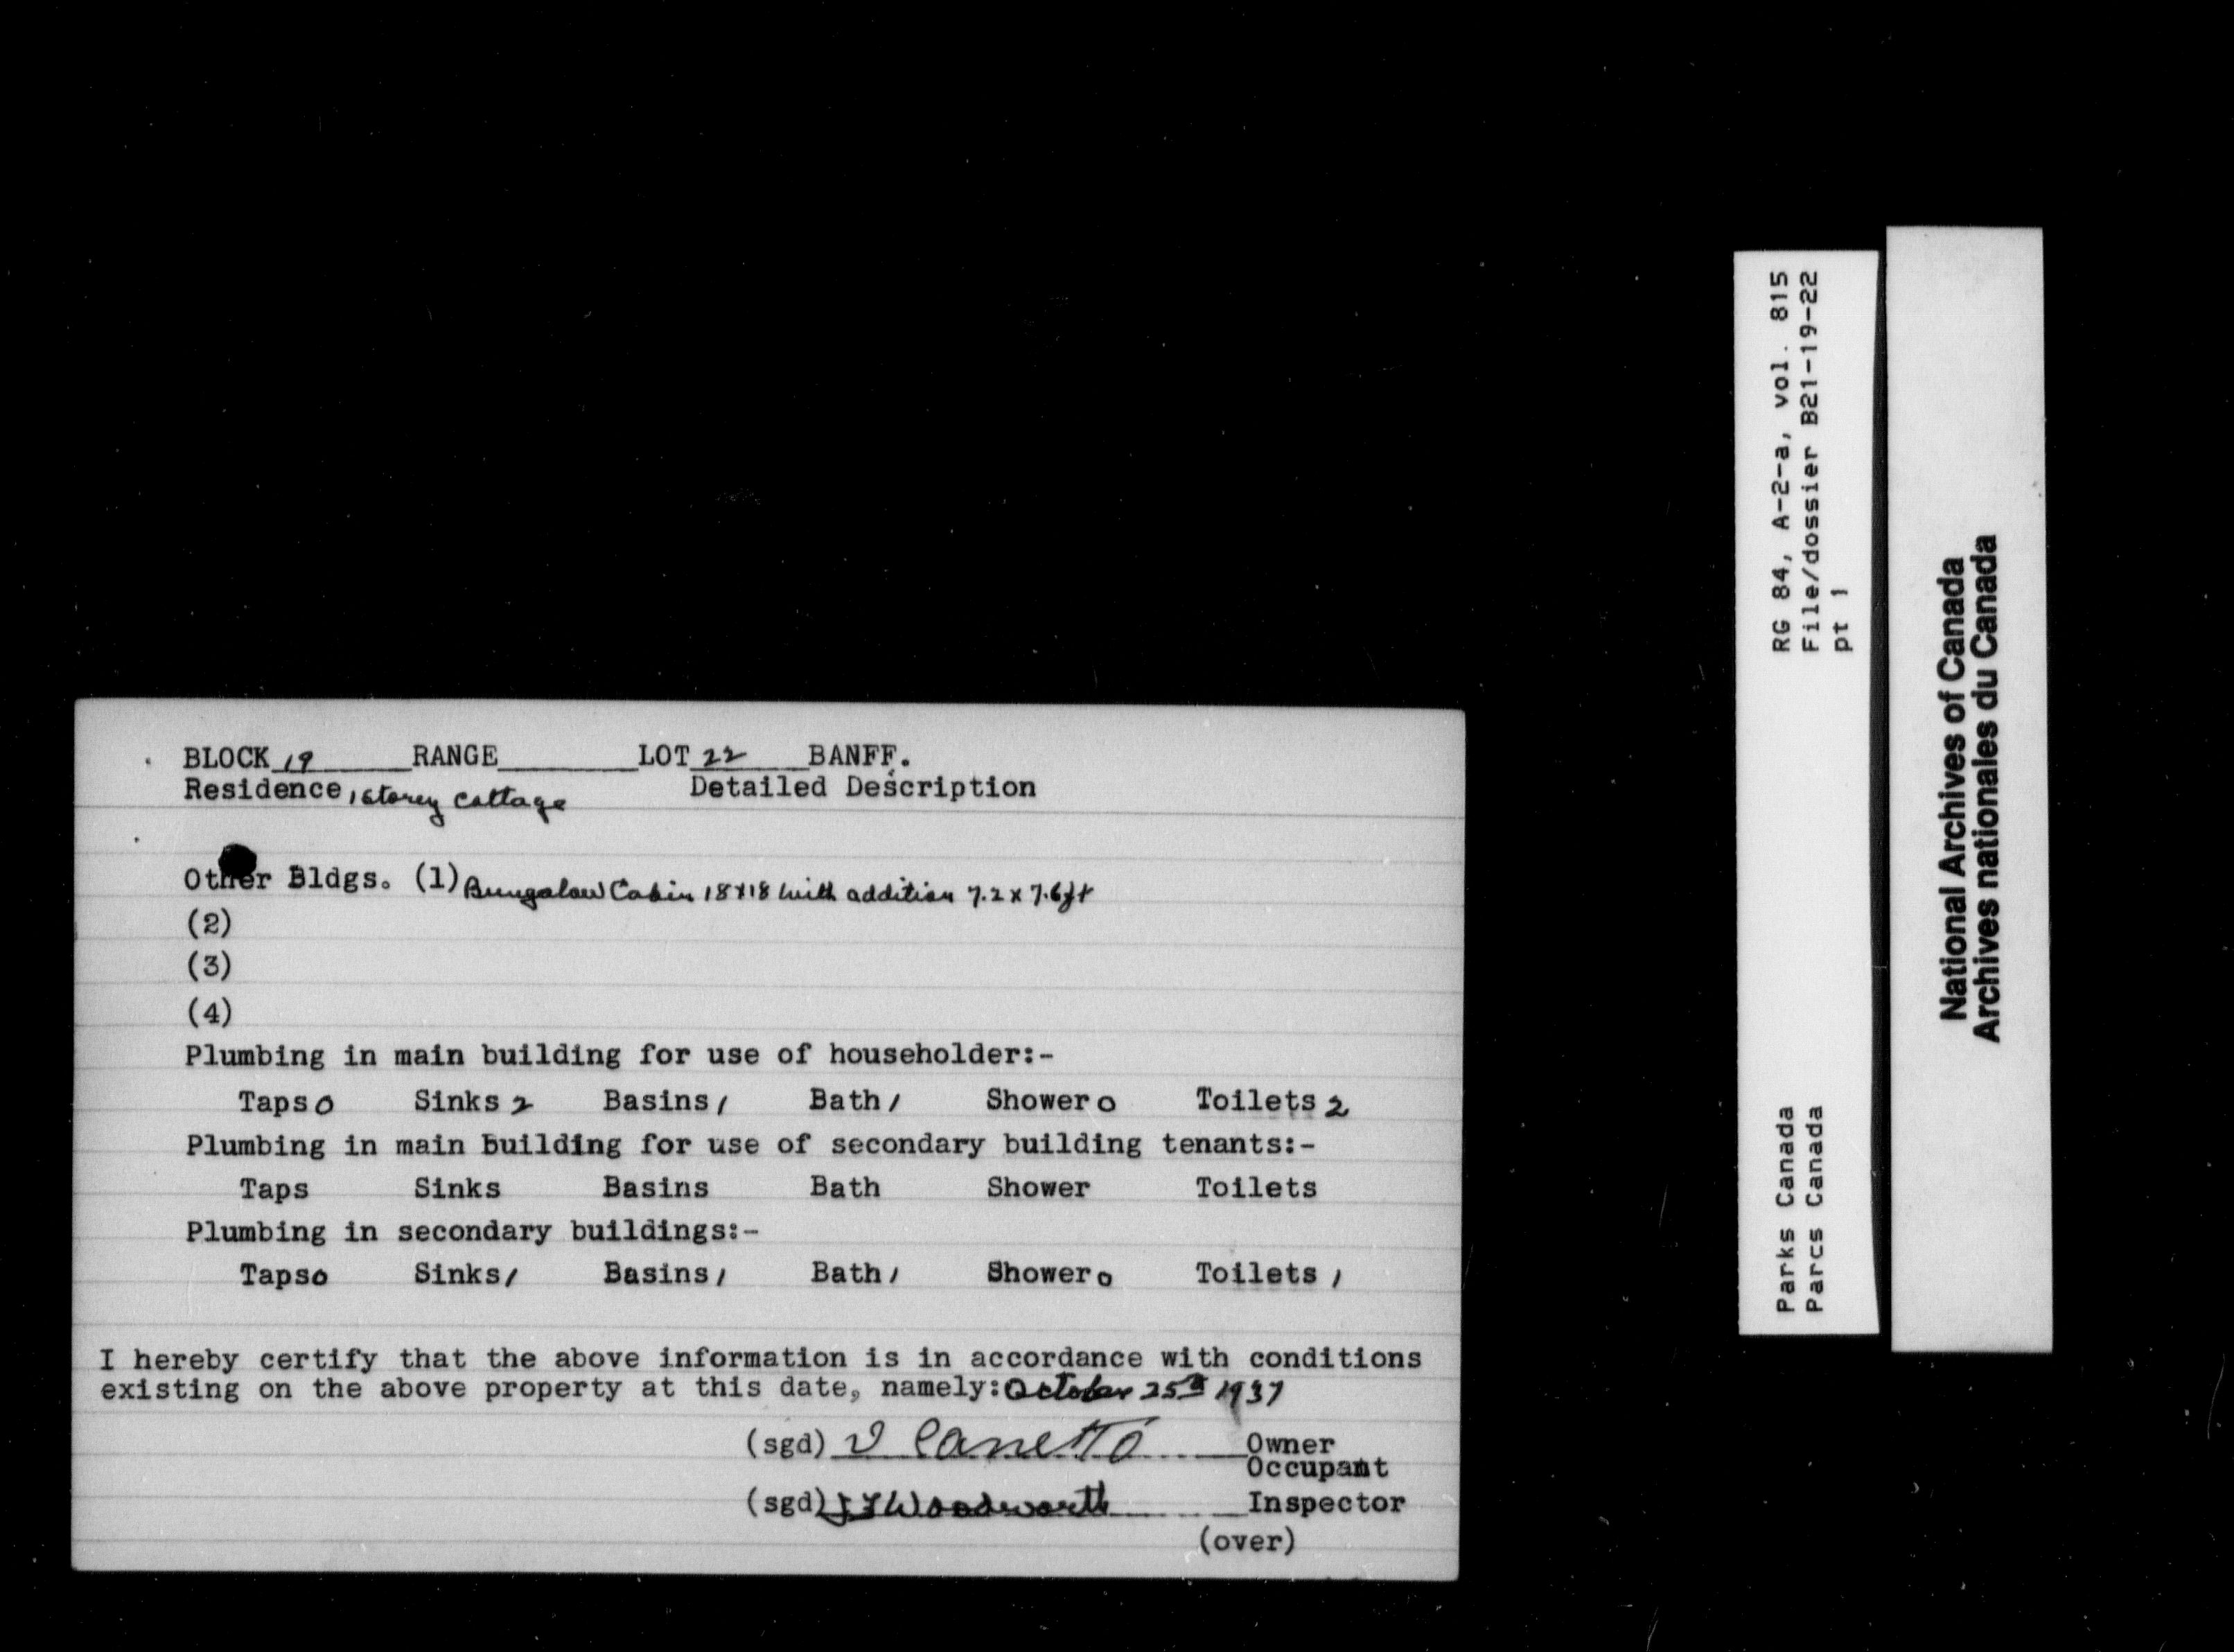 BLOCK 19 RANGE LOT 22 BANFF.
Residence 1 storey cottage Detailed Description
Other Bldgs. (1) Bungalow Cabin 18x18 with addition 7.2 x 7.6 ft
(2)
(3)
(4)
Plumbing in main building for use of householder:-
Taps 0 Sinks 2 Basins 1 Bath 1 Shower 0 Toilets 2
Plumbing in main building for use of secondary building tenants:-
Taps Sinks Basins Bath Shower Toilets
Plumbing in secondary buildings:-
Taps 0 Sinks 1 Basins 1 Bath 1 Shower 0 Toilets 1
I hereby certify that the above information is in accordance with conditions
existing on the above property at this date, namely: October 25th 1937
(sgd) Canetto Owner
Occupant
(sgd) Woodworth Inspector
(over)
RG 84, A-2-a, vol. 815
File/dossier B21-19-22
pt 1
Parks Canada
Parcs Canada
National Archives of Canada
Archives nationales du Canada